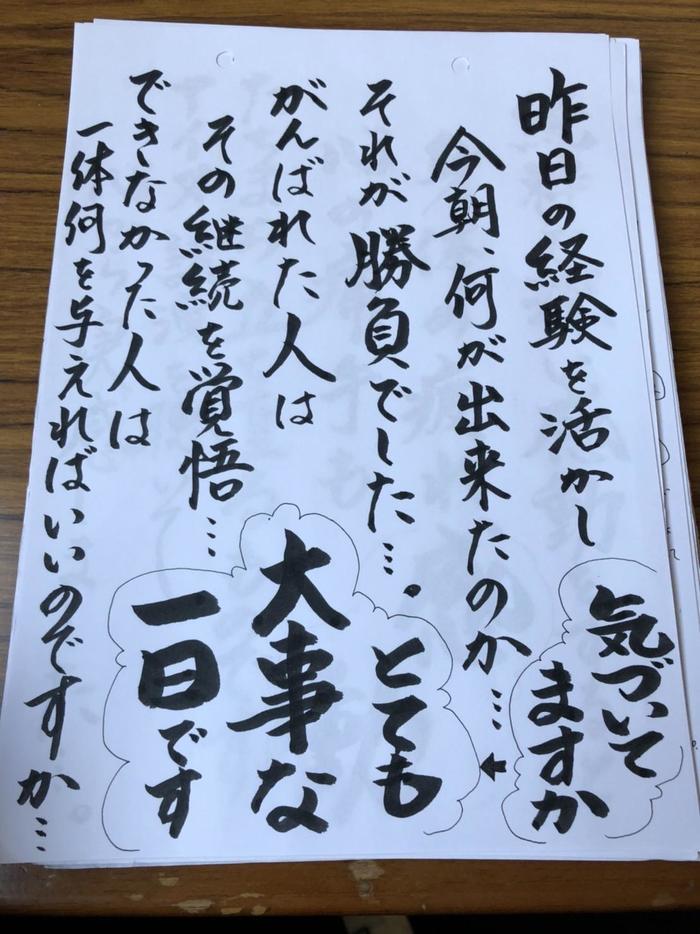 昨日の経験を活かし
今朝、何が出来たのか…
それが勝負でした…。
がんばれた人は
その継続を覚悟…
できなかった人は
一体何を与えればいいのですか…
気づいて
ますか
とても
大事な
一日です